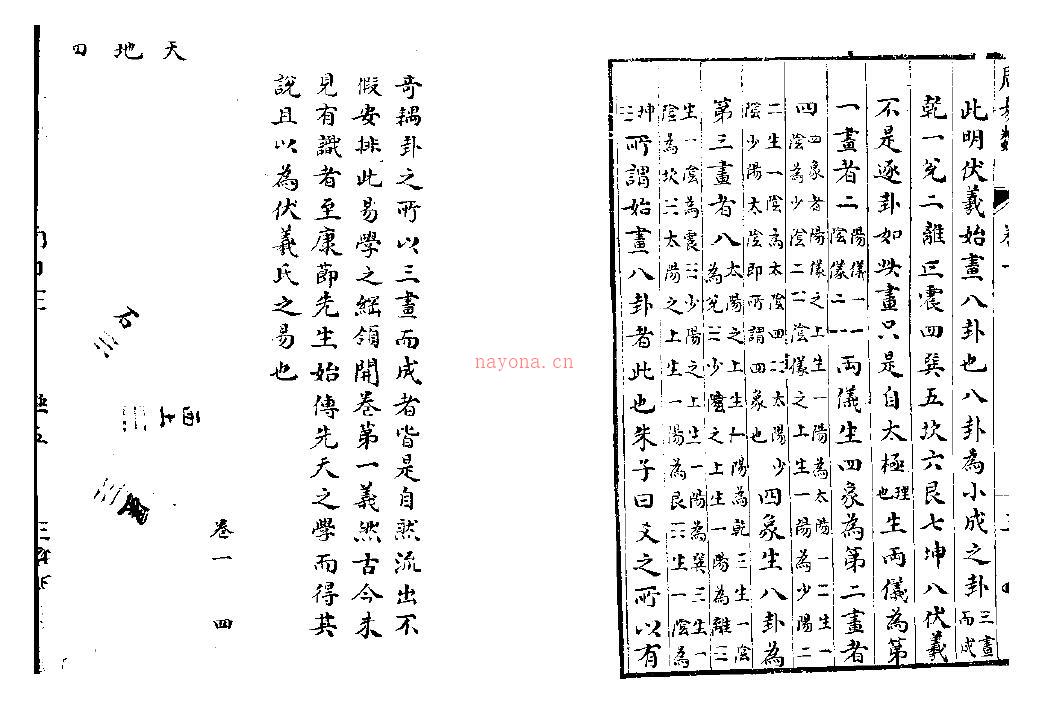 此明伏羲始畫八卦也八卦為小成之卦三畫而成
乾一兌二離三震四巽五坎六艮七坤八伏羲
不是逐卦如此畫只是自太極理也生兩儀為第
一畫者二陽儀一陰儀二兩儀生四象為第二畫者
四四象者陽儀之上生一陽為太陽一二生一陰為少陰二陰儀之上生一陽為少陽二
二生一陰為太陰四太陽少陰少陽太陰即所謂四象也四象生八卦為
第三畫者八太陽之上生一陽為乾三生一陰為兌三少陰之上生一陽為離三
生一陰為震三少陽之上生一陽為巽三生一陰為坎三太陽之上生一陽為艮三生一陰為
坤三所謂始畫八卦者此也朱子曰爻之所以有
奇耦卦之所以三畫而成者皆是自然流出不
假安排此易學之綱領開卷第一義然古今未
見有識者至康節先生始傳先天之學而得其
說且以為伏羲氏之易也
卷一 四
天地四
石
nayona.cn